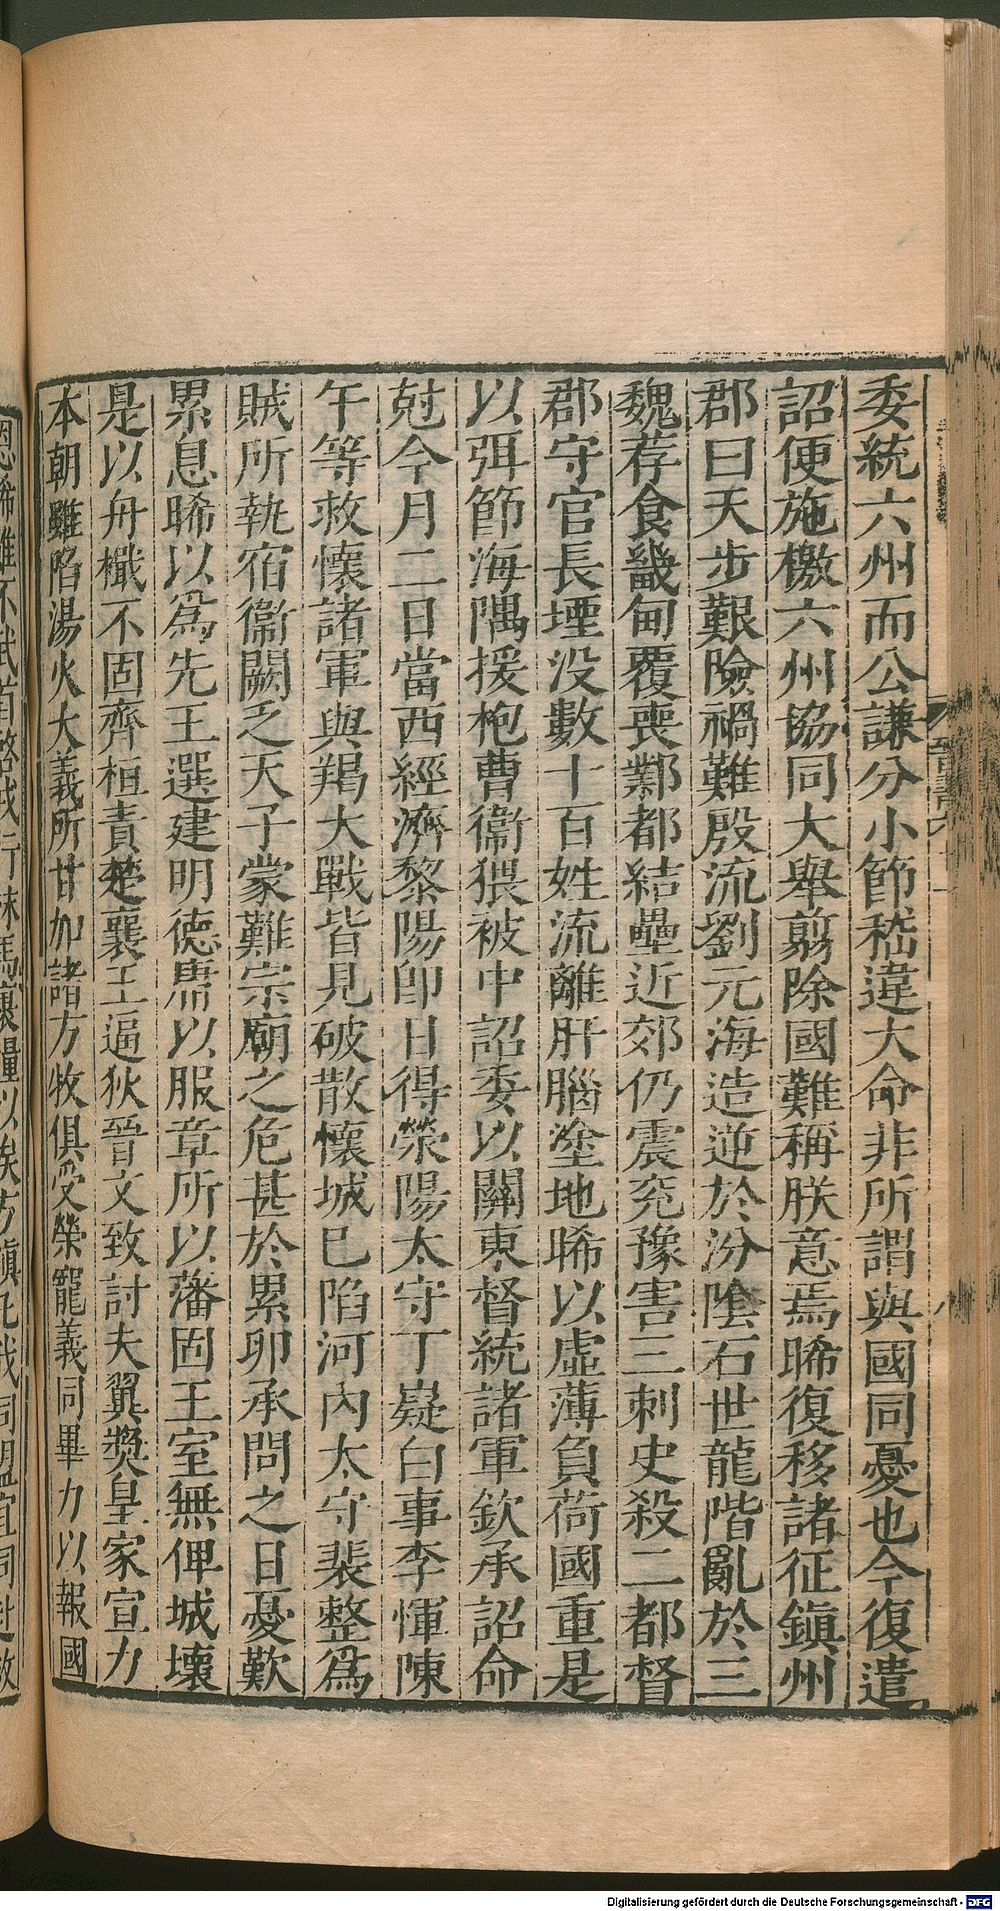 委統六州而公謙分小節稽違大命非所謂與國同憂也今復遣
詔便施檄六州協同大舉翦除國難稱朕意焉晞復移諸征鎮州
郡曰天步艱險禍難殷流劉元海造逆於汾陰石世龍階亂於三
魏荐食畿甸覆喪鄴都結壘近郊仍震兖豫害三刺史殺二都督
郡守官長堙没數十百姓流離肝腦塗地晞以虛薄負荷國重是
以弭節海隅援枹曹衞猥被中詔委以關東督統諸軍欽承詔命
尅今月二日當西經濟黎陽即日得滎陽太守丁嶷白事李惲陳
午等救懷諸軍與羯大戰皆見破散懷城已陷河內太守裴整爲
賊所執宿衞闕乏天子蒙難宗廟之危甚於累卵承問之日憂歎
累息晞以爲先王選建明德庸以服章所以藩固王室無俾城壞
是以舟檝不固齊桓責楚襄王逼狄晉文致討夫翼奬皇家宣力
本朝雖陷湯火大義所甘加諸方牧俱受榮寵義同畢力以報國
Digitalisierung gefördert durch die Deutsche Forschungsgemeinschaft - DFG